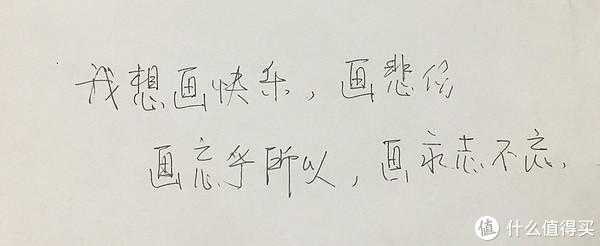 我想画快乐，画悲伤
画忘乎所以，画永志不忘.
值 什么值得买